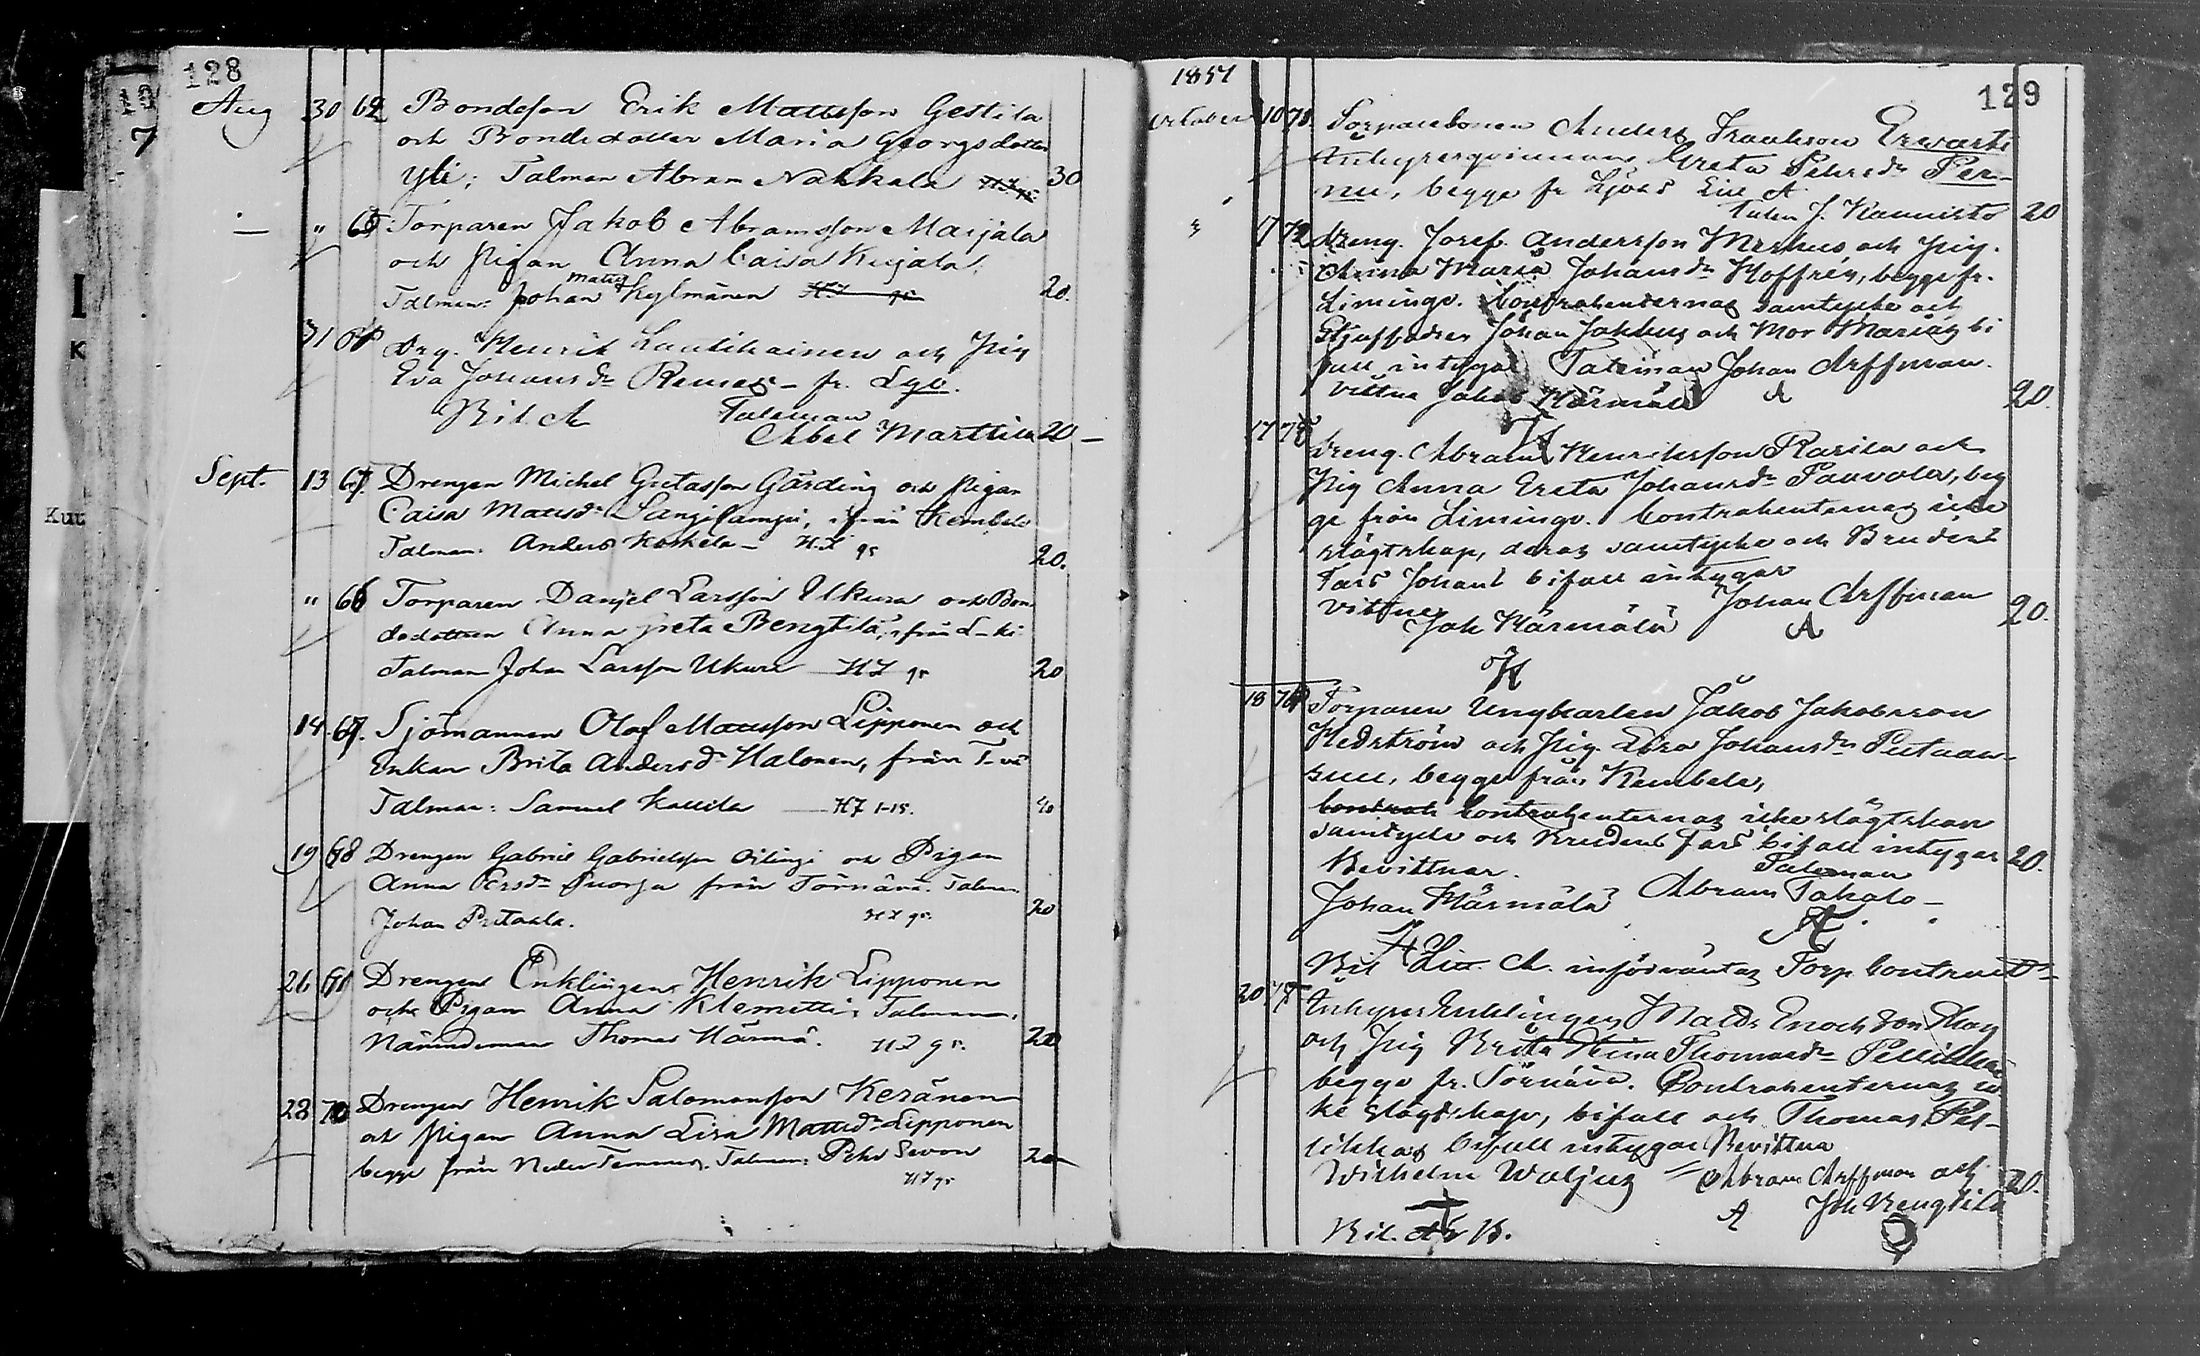 128
Aug 30 62 Bondeson Erik Mattsson Gestila
och Bondedotter Maria Georgsdotter
Yli; Talman Abram Nahkala 30
" 63 Torparen Jakob Abramsson Marjala
och Pigan Anna Caisa Kujala.
Talman: Johan Matts Kylmänen 20.
31 64 Drg. Henrik Lautikainen och Pig
Eva Johansdr fr. Lgo.
Bil. A Talman
Abel Marttila 20 –
Sept. 13 65. Drengen Michel Gustafsson Gårding och Pigan
Caisa Mattsdr från Kembele
Talman: Anders Koskela – HZ gr 20.
" 66 Torparen Danjel Larsson Ukura och Bon-
dedottren Anna Greta Bengtilä, från L-ki.
Talman Johan Larsson Ukura – HZ gr 20
14 67. Sjömannen Olof Mattsson Lipponen och
Enkan Brita Andersdr Halonen, från T-vi
Talman: Samuel Kauila – HZ 1-15.
19 68 Drengen Gabriel Gabrielsson och Pigan
Anna Persdr Puorga från Törnävä. Talman
Johan Pritaala. HZ gr. 20
26 69 Drengen Enklingen Henrik Lipponen
och Pigan Anna Klemetti; Talman:
Nämndeman Thomas Härmä. HZ gr. 20
28 70 Drengen Henrik Salomonsson Keränen
och Pigan Anna Lisa Mattsdr Lipponen
begge från Neder Temmes. Talman: Pehr Sevon 20
HZ gr
1857
129
October 10 71. Torparesonen Anders Isaakson Erwasti
Inhyresqvinnan Greta Pehrsdr Per-
nu, begge fr Kjvls Litt A
Talm J. Kannisto 20
" 17 72 dreng. Josef Andersson Merhus och Pig.
Anna Maria Johansdr Hoffrén, begge fr.
Limingo. Contrahenternas samtycke och
Stjuffadren Johan Jakkus och Mor Marias bi
fall intygar Talman Johan Arffman.
vittna Jakob Härmälä A 20.
H
17 73 dreng. Abram Henriksson Rasila och
Pig Anna Greta Johansdr Paavola, beg
ge från Limingo. Contrahenternas icke
slägtskap, deras samtycke och Brudens
Fars Johans bifall intygar
vittne Johan Arffman 20.
Joh Härmälä A
H
18 74 Torparen Ungkarlen Jakob Jakobsson
Hedström och Pig. Lisa Johansdr Putaan-
suu, begge från Kembele,
Contrah Contrahenternas icke slägtskap
samtycke och Brudens Fars bifall intygar 20.
Bevittnar. Taleman
Johan Härmälä Abram Takalo –
H A
Bil Litt. A. införväntas Torp Contract
20 75 Inhyses Enklingen Matts Enochsson
och Pig Brita Stina Thomasdr Pelikka
begge fr. Törnävä. Contrahenternas ic
ke slägtskap, bifall och Thomas Pel-
likkas bifall intygar Bevittna
Wilhelm Waljus Abram Arffman och 20.
A Joh Bengtilä
Bil. A & B.